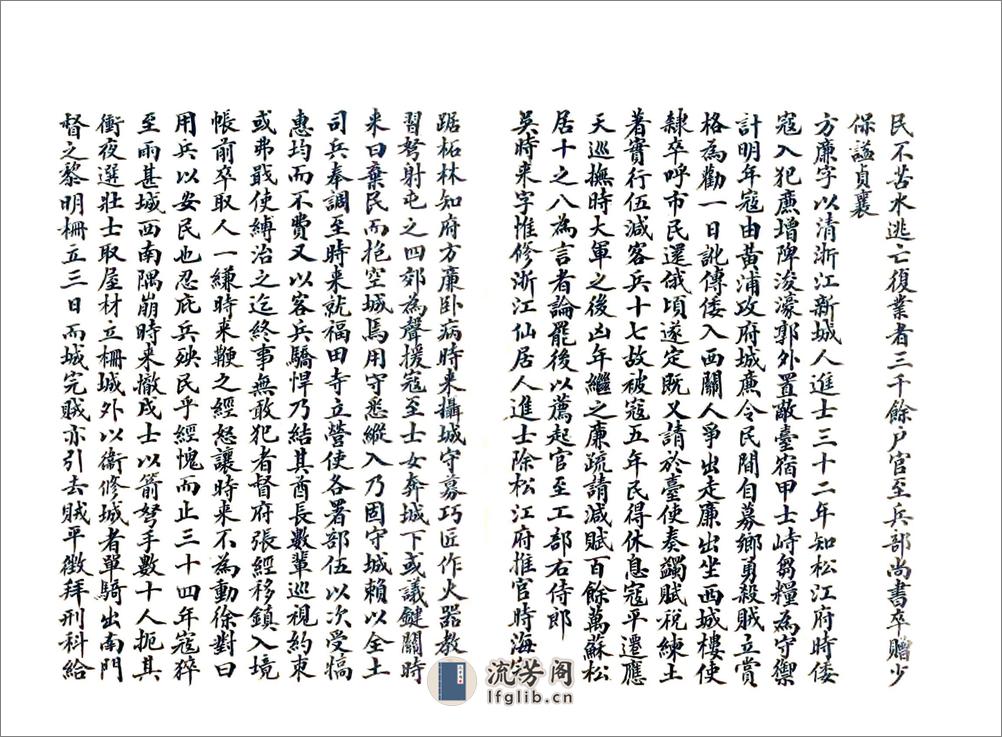 民不苦水逃亡復業者三千餘戶官至兵部尚書卒贈少
保謚貞襄
方廉字以清浙江新城人進士三十二年知松江府時倭
寇入犯廉增陴浚濠郭外置敵臺宿甲士峙芻糧為守禦
計明年寇由黃浦政府城廉令民間自募鄉勇殺賊立賞
格為勸一日訛傳倭入西關人爭出走廉出坐西城樓使
隸卒呼市民還俄頃遂定既又請於臺使奏蠲賦稅練土
著實行伍減客兵十七故被寇五年民得休息寇平遷應
天巡撫時大軍之後凶年繼之廉疏請減賦百餘萬蘇松
居十之八為言者論罷後以薦起官至工部右侍郎
吳時来字惟修浙江仙居人進士除松江府推官時海
踞柘林知府方廉卧病時来攝城守募巧匠作火器教
習弩射屯之四郊為聲援寇至士女奔城下或議鍵關時
来曰棄民而抱空城焉用守悉縱入乃固守城賴以全土
司兵奉調至時来就福田寺立營使各署部伍以次受犒
惠均而不費又以客兵驕悍乃結其酋長數輩巡視約束
或弗戢使縛治之迄終事無敢犯者督府張經移鎮入境
帳前卒取人一縑時来鞭之經怒讓時来不為動徐對曰
用兵以安民也忍庇兵殃民乎經愧而止三十四年寇猝
至雨甚城西南隅崩時来撤戍士以箭弩手數十人扼其
衝夜選壯士取屋材立柵城外以衞修城者單騎出南門
督之黎明柵立三日而城完賊亦引去賊平徵拜刑科給
流芳阁
lfglib.cn